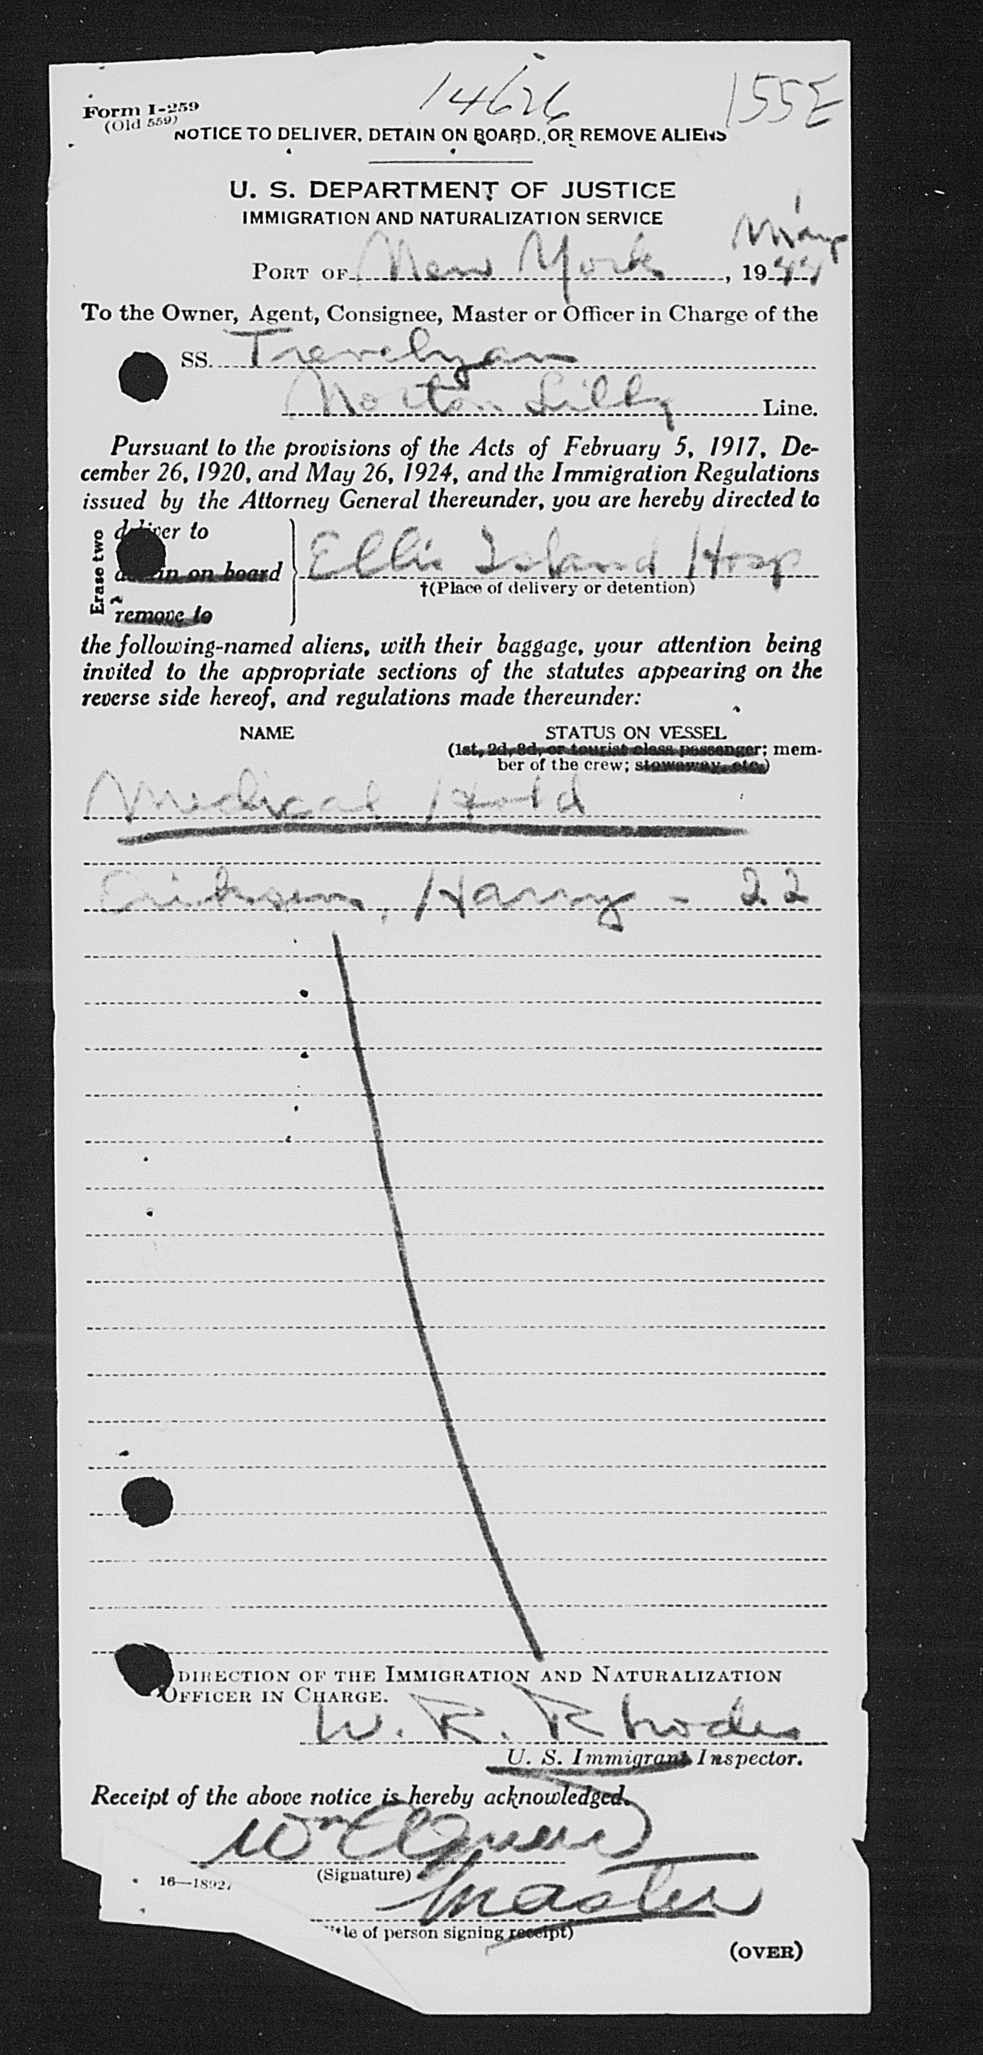 14626 155E
Form I-259
(Old 559)
NOTICE TO DELIVER, DETAIN ON BOARD, OR REMOVE ALIENS
U. S. DEPARTMENT OF JUSTICE
IMMIGRATION AND NATURALIZATION SERVICE
PORT OF New York, 1944
To the Owner, Agent, Consignee, Master or Officer in Charge of the
SS. Trevelyan
Norton Lilly Line.
Pursuant to the provisions of the Acts of February 5, 1917, De-
cember 26, 1920, and May 26, 1924, and the Immigration Regulations
issued by the Attorney General thereunder, you are hereby directed to
Erase two
deliver to
detain on board
remove to
Ellis Island Hosp
†(Place of delivery or detention)
the following-named aliens, with their baggage, your attention being
invited to the appropriate sections of the statutes appearing on the
reverse side hereof, and regulations made thereunder:
NAME STATUS ON VESSEL
(1st, 2d, 3d, or tourist class passenger; mem-
ber of the crew; stowaway, etc.)
Medical Hold
Erikson, Harry - 22
DIRECTION OF THE IMMIGRATION AND NATURALIZATION
OFFICER IN CHARGE.
W. R. Rhodes
U. S. Immigrant Inspector.
Receipt of the above notice is hereby acknowledged.
(Signature)
16—18927
Master
itle of person signing receipt)
(OVER)